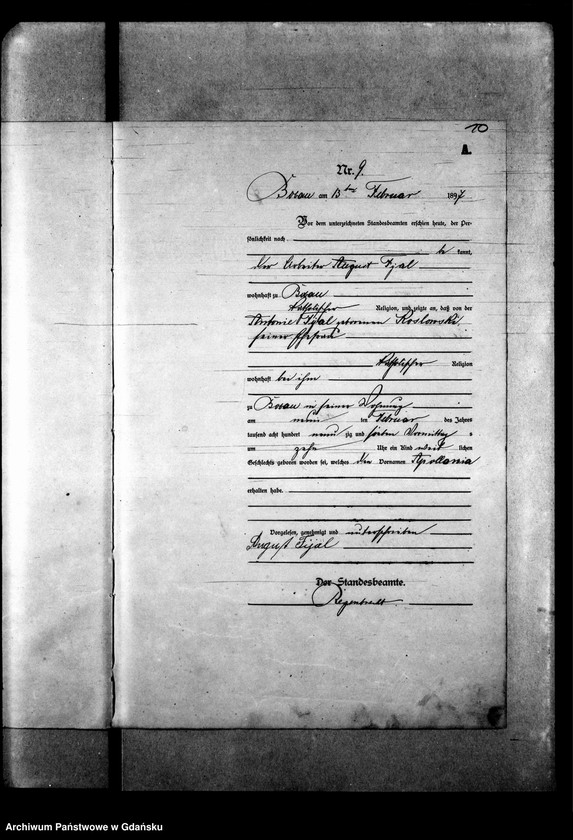 10
A.
Nr. 9.
Bosau am 13ten Februar 1897
Vor dem unterzeichneten Standesbeamten erschien heute, der Per-
sönlichkeit nach
be kannt,
der Arbeiter August Fijal
wohnhaft zu Bosau
katholischer Religion, und zeigte an, daß von der
Antonie Fijal geborenen Koslowski,
seiner Ehefrau
katholischer Religion
wohnhaft bei ihm
zu Bosau in seiner Wohnung
am neun ten Februar des Jahres
tausend acht hundert neun zig und sieben Vormittag s
um zehn Uhr ein Kind weib lichen
Geschlechts geboren worden sei, welches den Vornamen Apollonia
erhalten habe.
Vorgelesen, genehmigt und unterschrieben
August Fijal
Der Standesbeamte.
Archiwum Państwowe w Gdańsku